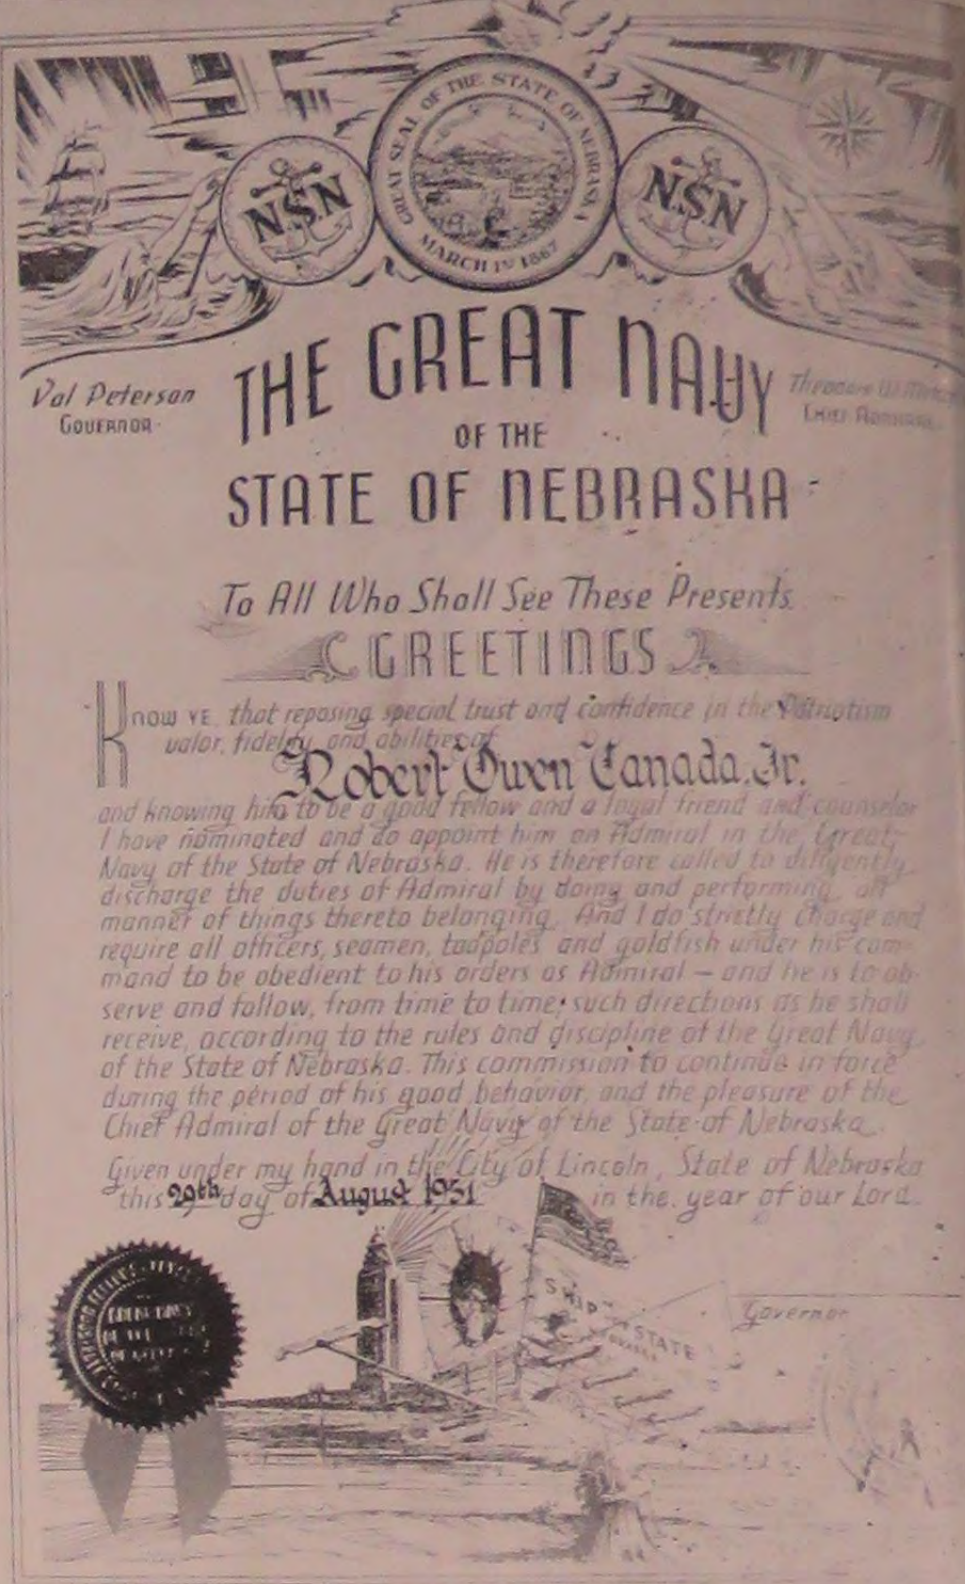 GREAT SEAL OF THE STATE OF NEBRASKA
MARCH 1ST 1867
NSN
NSN
THE GREAT NAVY
OF THE
STATE OF NEBRASKA
Val Peterson
GOVERNOR
Theodore W.
CHIEF ADMIRAL
To All Who Shall See These Presents
GREETINGS
KNOW YE, that reposing special trust and confidence in the Patriotism
valor, fidelity, and abilities of
Robert Owen Canada, Jr.
and knowing him to be a good fellow and a loyal friend and counselor
I have nominated and do appoint him an Admiral in the Great
Navy of the State of Nebraska. He is therefore called to diligently
discharge the duties of Admiral by doing and performing all
manner of things thereto belonging. And I do strictly charge and
require all officers, seamen, tadpoles and goldfish under his com-
mand to be obedient to his orders as Admiral — and he is to ob-
serve and follow, from time to time, such directions as he shall
receive, according to the rules and discipline of the Great Navy
of the State of Nebraska. This commission to continue in force
during the period of his good behavior, and the pleasure of the
Chief Admiral of the Great Navy of the State of Nebraska.
Given under my hand in the City of Lincoln, State of Nebraska
this 29th day of August 1951 in the year of our Lord.
Governor
SHIP
STATE